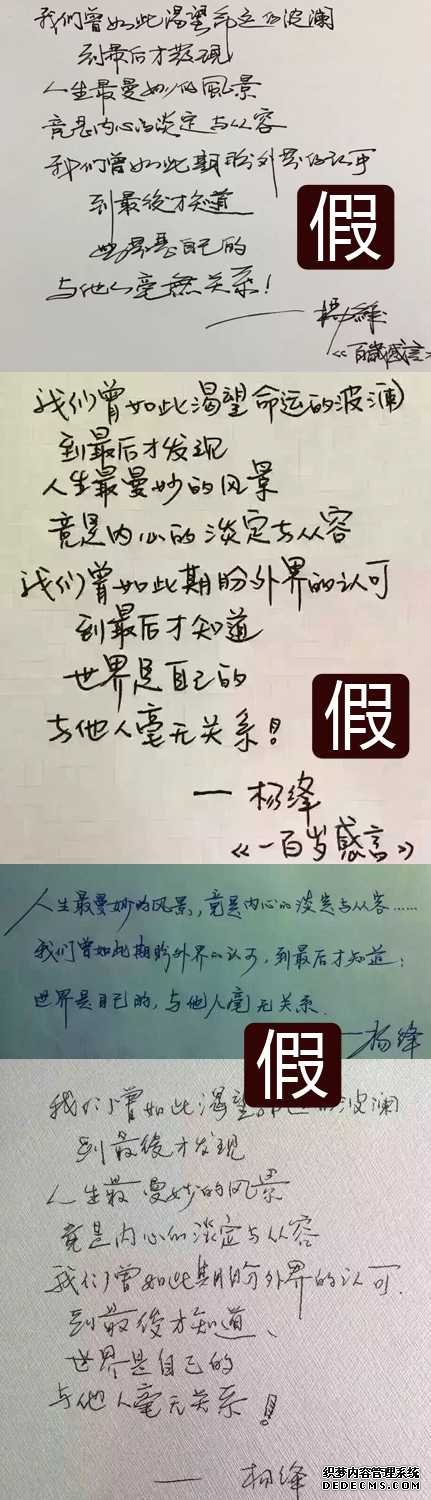 我们曾如此渴望命运的波澜
到最后才发现
人生最曼妙的風景
竟是内心的淡定与从容
我们曾如此期盼外界的认可
到最後才知道
世界是自己的
与他人毫無关系！
假
——杨絳
《百歲感言》
我们曾如此渴望命运的波澜
到最后才发现
人生最曼妙的风景
竟是内心的淡定与从容
我们曾如此期盼外界的认可
到最后才知道
世界是自己的
与他人毫无关系！
假
— 杨绛
《一百岁感言》
人生最曼妙的风景，竟是内心的淡定与从容……
我们曾如此期盼外界的认可，到最后才知道：
世界是自己的，与他人毫无关系.
——杨绛
假
我们曾如此渴望 的波澜
到最後才发现
人生最曼妙的风景
竟是内心的淡定与从容
我们曾如此期盼外界的认可.
到最後才知道、
世界是自己的
与他人毫无关系！
— 杨绛
织梦内容管理系统
DEDECMS.COM